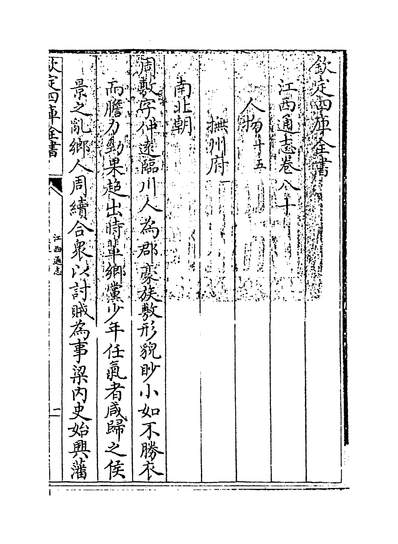 欽定四庫全書
江西通志卷八十
人物十五
撫州府
南北朝
周敷字仲遠臨川人為郡豪族敷形貌眇小如不勝衣
而膽力勁果超出時軰鄉黨少年任氣者咸歸之侯
景之亂鄉人周續合衆以討賊為事梁内史始興藩
欽定四庫全書
江西通志
一